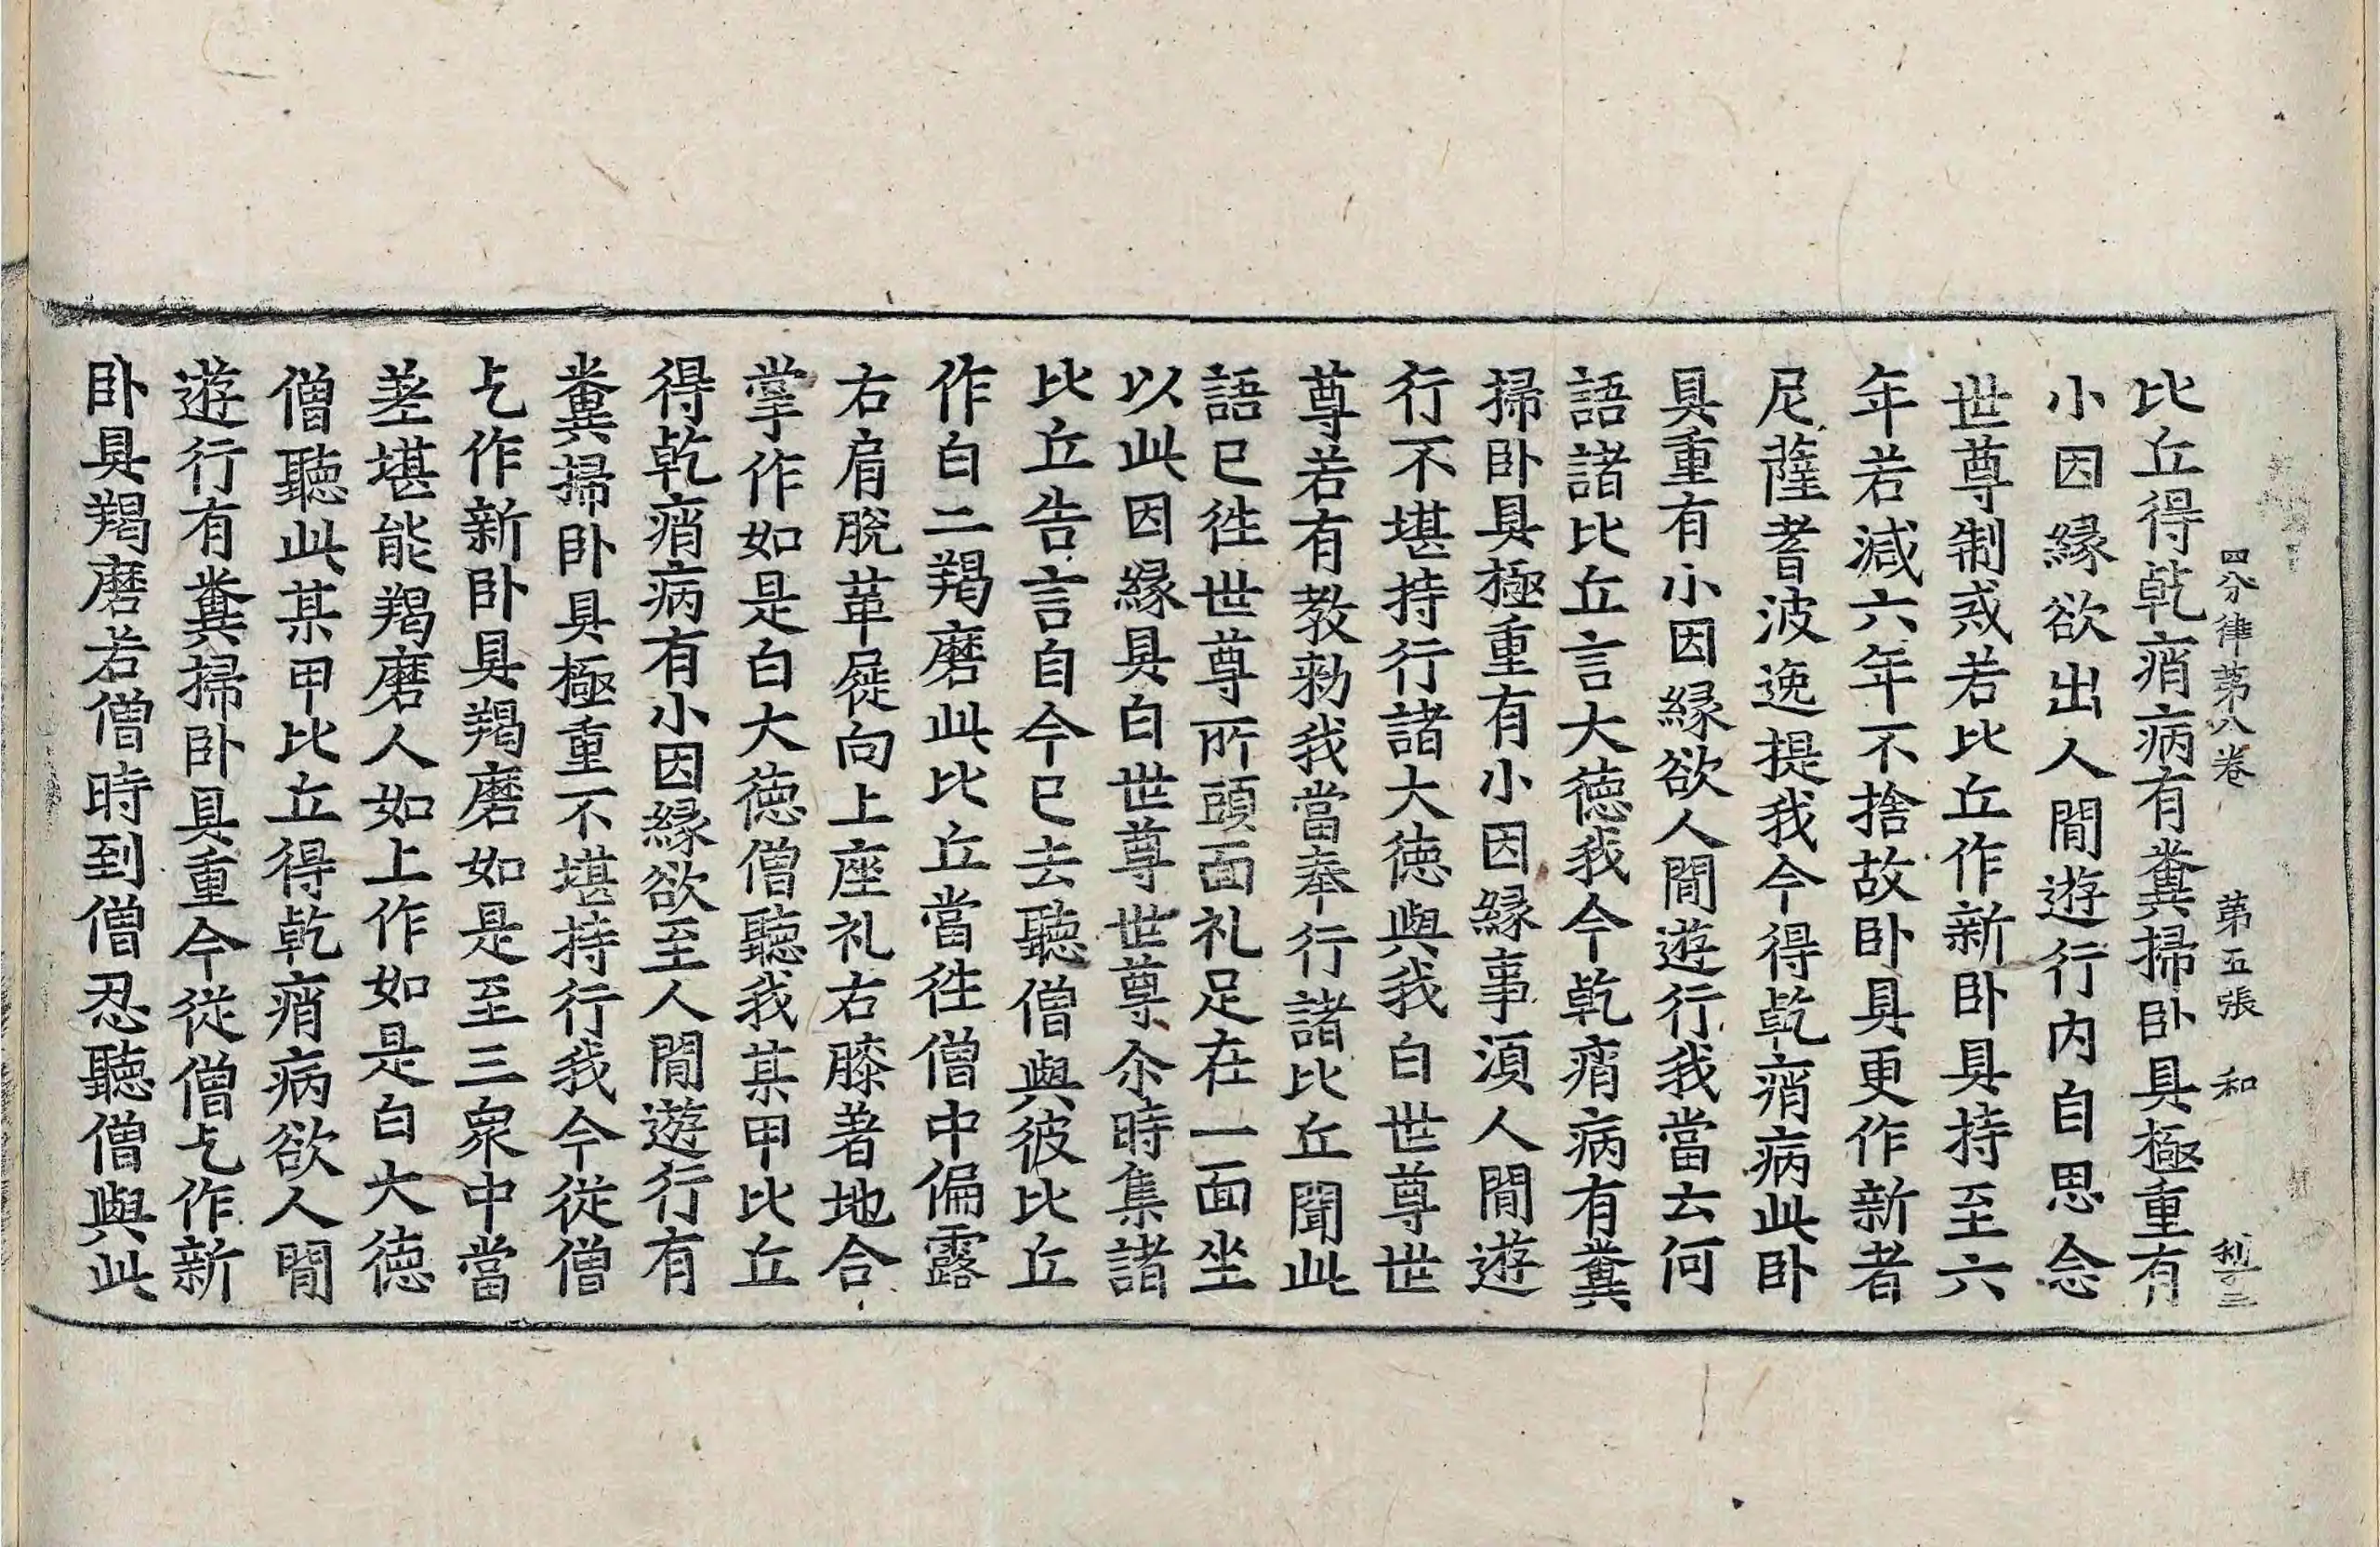 四分律第八卷　第五張　和
比丘得乾痟病有糞掃卧具極重有
小因縁欲出人間遊行内自思念
世尊制戒若比丘作新卧具持至六
年若減六年不捨故卧具更作新者
尼薩耆波逸提我今得乾痟病此卧
具重有小因縁欲人間遊行我當云何
語諸比丘言大德我今乾痟病有糞
掃卧具極重有小因縁事須人間遊
行不堪持行諸大德與我白世尊世
尊若有教勑我當奉行諸比丘聞此
語已往世尊所頭面礼足在一面坐
以此因縁具白世尊世尊尒時集諸
比丘告言自今已去聽僧與彼比丘
作白二羯磨此比丘當往僧中偏露
右肩脫革屣向上座礼右膝著地合
掌作如是白大德僧聽我某甲比丘
得乾痟病有小因縁欲至人間遊行有
糞掃卧具極重不堪持行我今從僧
乞作新卧具羯磨如是至三衆中當
差堪能羯磨人如上作如是白大德
僧聽此某甲比丘得乾痟病欲人間
遊行有糞掃卧具重今從僧乞作新
卧具羯磨若僧時到僧忍聽僧與此